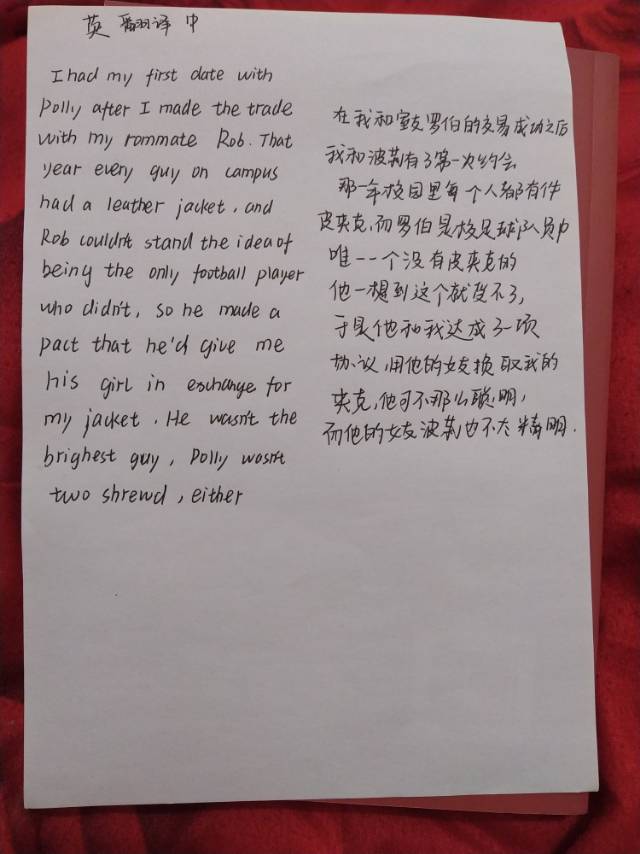 英 翻译 中
I had my first date with
Polly after I made the trade
with my rommate Rob. That
year every guy on campus
had a leather jacket, and
Rob couldn't stand the idea of
being the only football player
who didn't, so he made a
pact that he'd give me
his girl in exchange for
my jacket. He wasn't the
brighest guy, Polly wasn't
two shrewd, either
在我和室友罗伯的交易成功之后
我和波莉有了第一次约会
那一年校园里每个人都有件
皮夹克,而罗伯是校足球队员中
唯一一个没有皮夹克的
他一想到这个就受不了,
于是他和我达成了一项
协议,用他的女友换取我的
夹克,他可不那么聪明,
而他的女友波莉也不太精明.